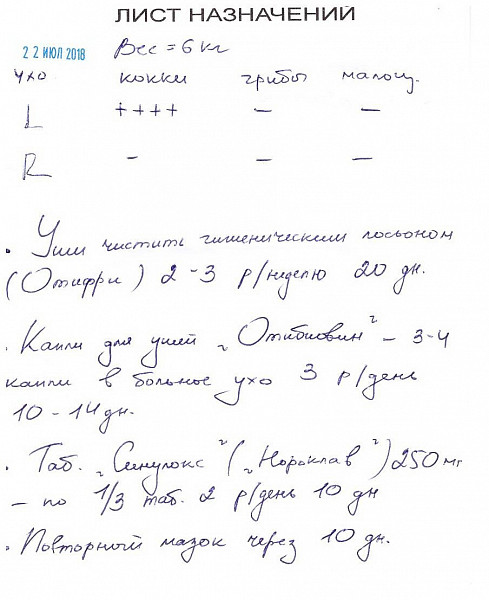 ЛИСТ НАЗНАЧЕНИЙ
22 ИЮЛ 2018 Вес = 6 кг
ухо кокки грибы малоц.
L ++++ – –
R – – –
• Уши чистить гигиеническим лосьоном
(Отифри) 2-3 р/неделю 20 дн.
• Капли для ушей „Отибиовин" – 3-4
капли в больное ухо 3 р/день
10-14 дн.
• Таб. „Синулокс" („Нороклав") 250 мг
– по 1/3 таб. 2 р/день 10 дн
• Повторный мазок через 10 дн.